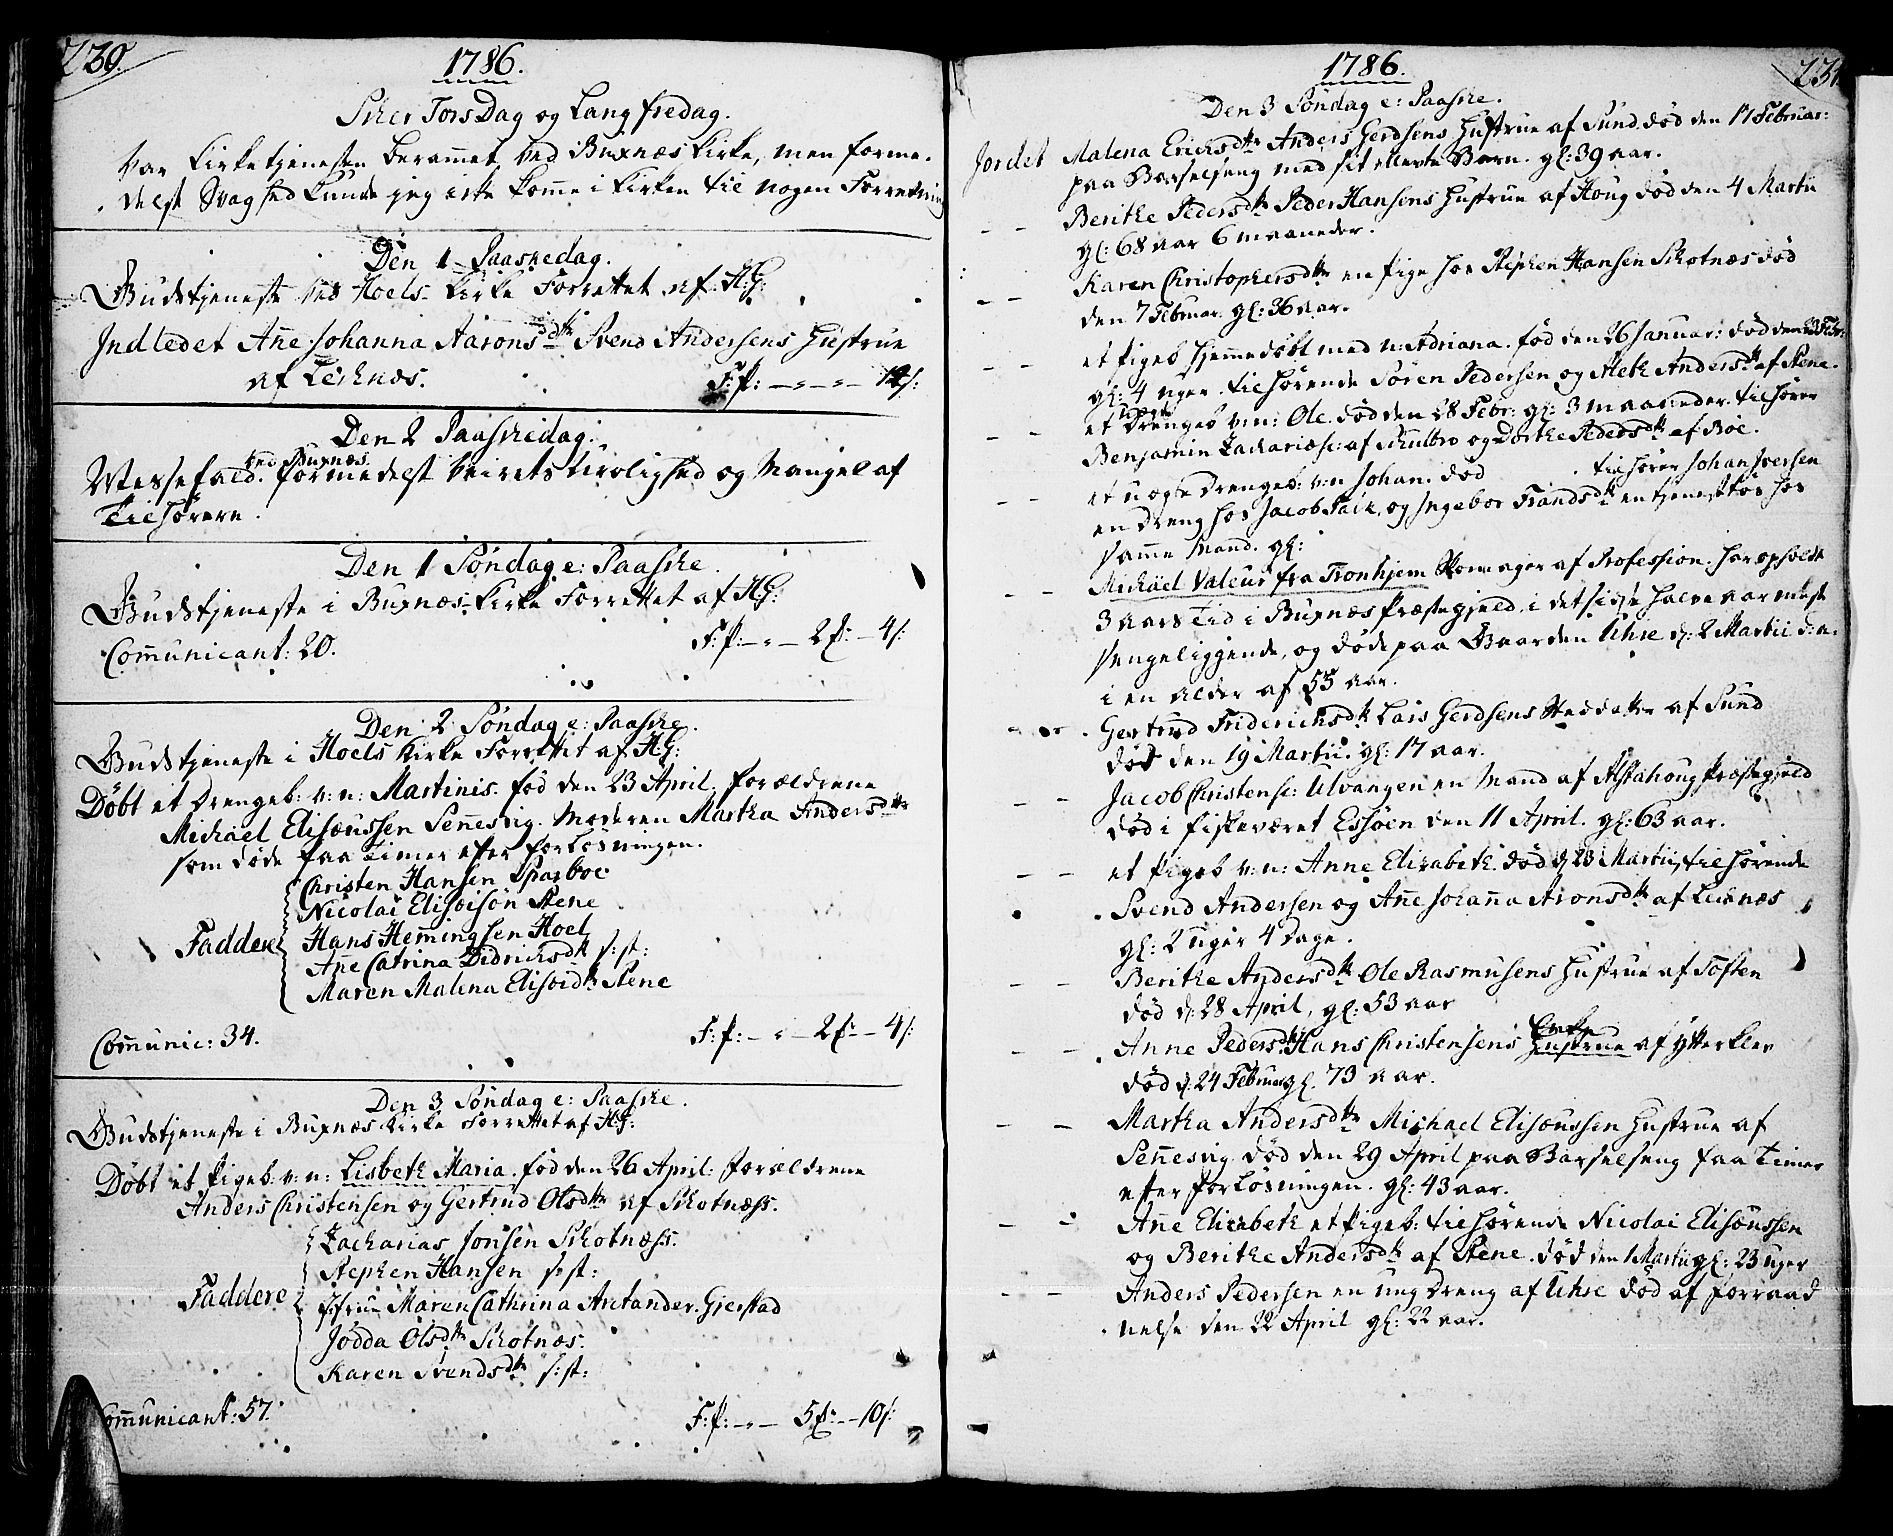 230.
1786.
Skier Torsdag og Langfredag.
var Kirketjenesten beramet ved Buxnæs Kirke, men forme-
delst Svaghed kunde jeg icke komme i Kirken til nogen Forretning
Den 1 Paaskedag.
Gudstjeneste ved Hoels Kirke Forrettet af H:G:
Indledet Ane Johanna Aaronsdtr Svend Andersens Hustrue
af Leknæs.
F:P: – – – 12 s:
Den 2 Paaskedag.
Messefald ved Buxnæs formedelst Veirets Urolighed og Mangel af
Tilhørere.
Den 1 Søndag e: Paaske.
Gudstjeneste i Buxnæs Kirke Forrettet af HG:
Communicant: 20.
F:P: – – 2 f: – 4 s:
Den 2 Søndag e: Paaske.
Gudstjeneste i Hoels Kirke Forrettet af HG:
Døbt et Drengeb: v: n: Martinis. fød den 23 April, forældrene
Michael Elisæussen Senesvig. Moderen Martha Andersdtr
som døde faa Timer efter forløsningen.
Christen Hansen Sparboe
Nicolai Elisoisøn Stene
Faddere
Hans Hemingsen Hoel
Ane Catrina Didrichsdtr s: st:
Maren Malena Elisoidtr Stene
Communic: 34.
F:P: – – 2 f: – 4 s:
Den 3 Søndag e: Paaske.
Gudstjeneste i Buxnæs Kirke Forrettet af HG:
Døbt et Pigeb: v: n: Lisbeth Maria. fød den 26 April: forældrene
Anders Christensen og Gertrud Olsdtr af Skotnæss.
Zacharias Jonsen Skotnæss.
Stephen Hansen s: st:
Faddere
Jfrue Maren Cathrina Arctander. Gierstad
Jødda Olsdtr Skotnæs.
Karen Svendsdtr s: st:
Communicant: 57.
F:P: – – 5 f: – 10 s:
231
1786.
Den 3 Søndag e: Paaske.
Jordet Malena Ericksdtr Anders Gerdsens Hustrue af Sund. død den 17 Februar:
paa Barselseng med sit ellevte Barn. gl: 39 aar.
– – Berithe Pedersdtr Peder Hansens Hustrue af Houg død den 4 Martii
gl: 68 aar 6 maaneder.
– – Karen Christophersdtr en Pige hos Stephen Hansen Skotnæs død
den 7 Februar. gl: 36 aar.
– – et Pigeb hjemmedøbt med n: Adriana. fød den 26 Januar: død den 23 Febr:
gl: 4 uger. tilhørende Sören Pedersen og Aleth Andersdtr af Stene.
– – et uægte Drengeb v: n: Ole. død den 28 Febr: gl: 3 maaneder. tilhører
Benjamin Zachariæs: af Skulbro og Dorthe Pedersdtr af Böe.
– – et uægte Drengeb: v: n Johan. død tilhører Johan Iversen
en Dreng hos Jacob Falk, og Ingebor Frandsdtr en tjenestetøs hos
samme Mand. gl:
– – Michael Valeur fra Tronhjem Skomager af Profession. har opholdt
3 aars Tid i Buxnæs Præstegjeld, i det sidste halve aar meste
sengeliggende, og døde paa Gaarden Uhre d: 2 Martii d: a.
i en alder af 55 aar.
– – Gertrud Friderichsdtr Lars Gerdsens Steddatter af Sund
død den 19 Martii. gl: 17 aar.
– – Jacob Christens: Ulvangen en Mand af Alstahoug Præstegjeld
død i fiskeværet Essøen den 11 April. gl: 63 aar.
– – et Pigeb v: n: Anne Elisabeth. død d 23 Martii, tilhørende
Svend Andersen og Ane Johanna Aronsdtr af Leknæs
gl: 2 uger 4 dage.
– – Berithe Andersdtr Ole Rasmusens Hustrue af Toften
død d: 28 April, gl: 53 aar
– – Anne Pedersdtr Hans Christensens Hustrue Encke af Ytterklev
død d: 24 Februar gl. 73 aar.
– – Martha Andersdtr Michael Elisæussen Hustrue af
Senesvig død den 29 April paa Barselseng faa Timer
efter forløsningen. gl: 43 aar.
– – Ane Elisabeth et Pigeb: tilhørende Nicolai Elisæussen
og Berithe Andersdtr af Stene. død den 1 Martii gl: 23 uger
– – Anders Pedersen en ung Dreng af Uhre død af forraad
nelse den 22 April gl: 22 aar.